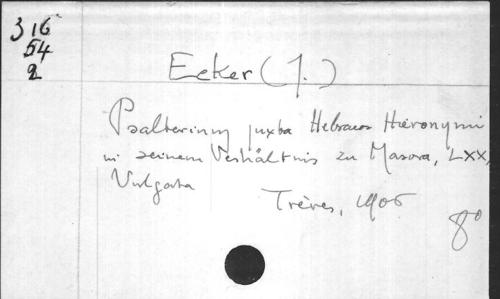 316
54
2
Ecker (J.)
Psalterium juxta Hebraeos Hieronymi
in seinem Verhältnis zu Masora, LXX,
Vulgata
Trèves, 1906
8°